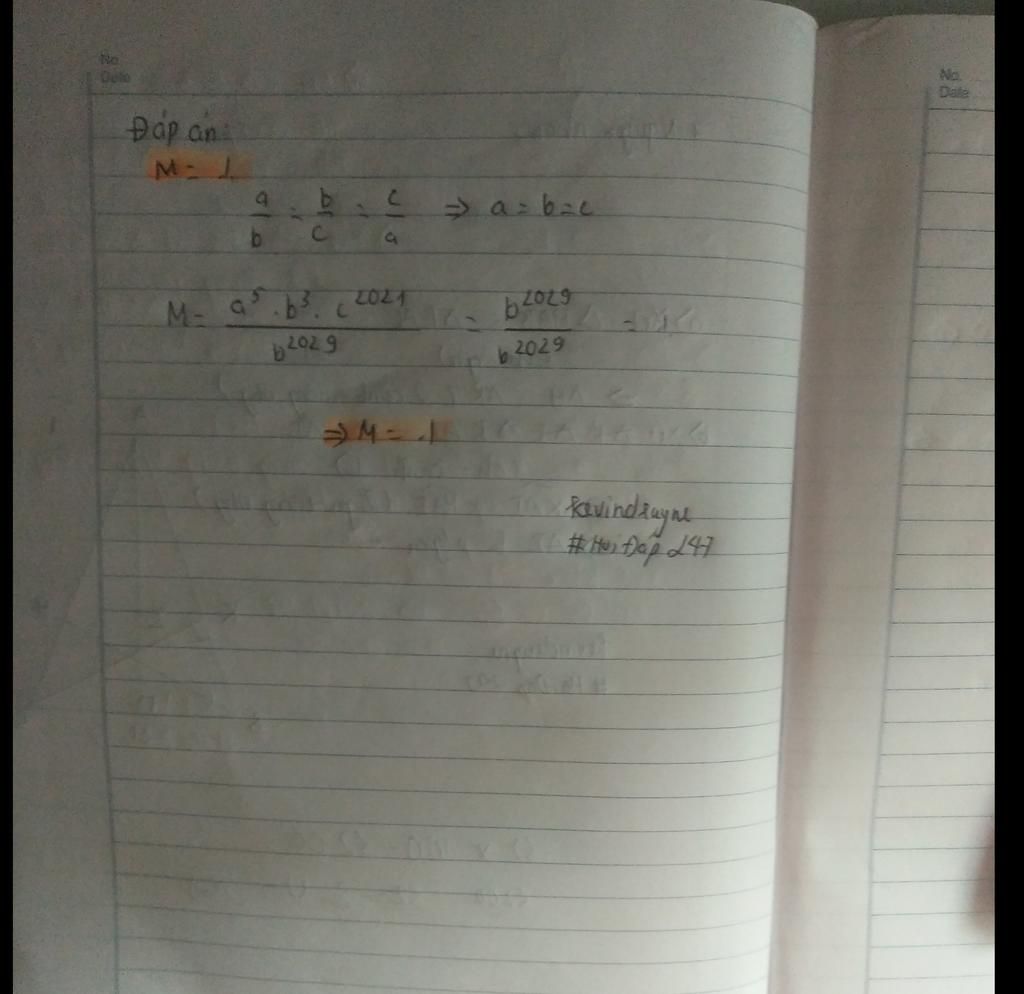 No.
Date
No.
Date
Đáp án:
M = 1
a/b = b/c = c/a ⇒ a = b = c
M = a⁵ . b³ . c²⁰²¹ / b²⁰²⁹ = b²⁰²⁹ / b²⁰²⁹ = 1
⇒ M = 1
kevindrayne
#Hỏi Đáp 247